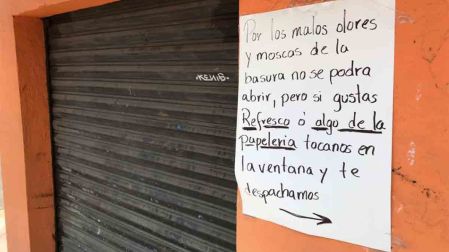 KENIB.
Por los malos olores
y moscas de la
basura no se podra
abrir, pero si gustas
Refresco ó algo de la
papeleria tocanos en
la ventana y te
despachamos